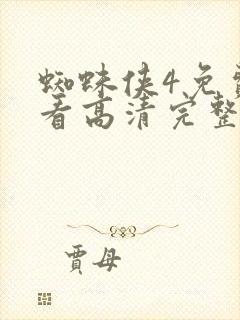 蜘蛛侠4免费
看高清完整
贾母